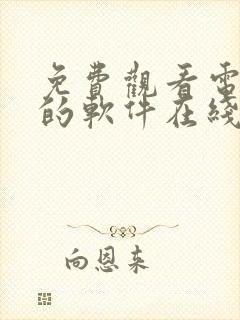 免費觀看電
的軟件在綫
向恩来